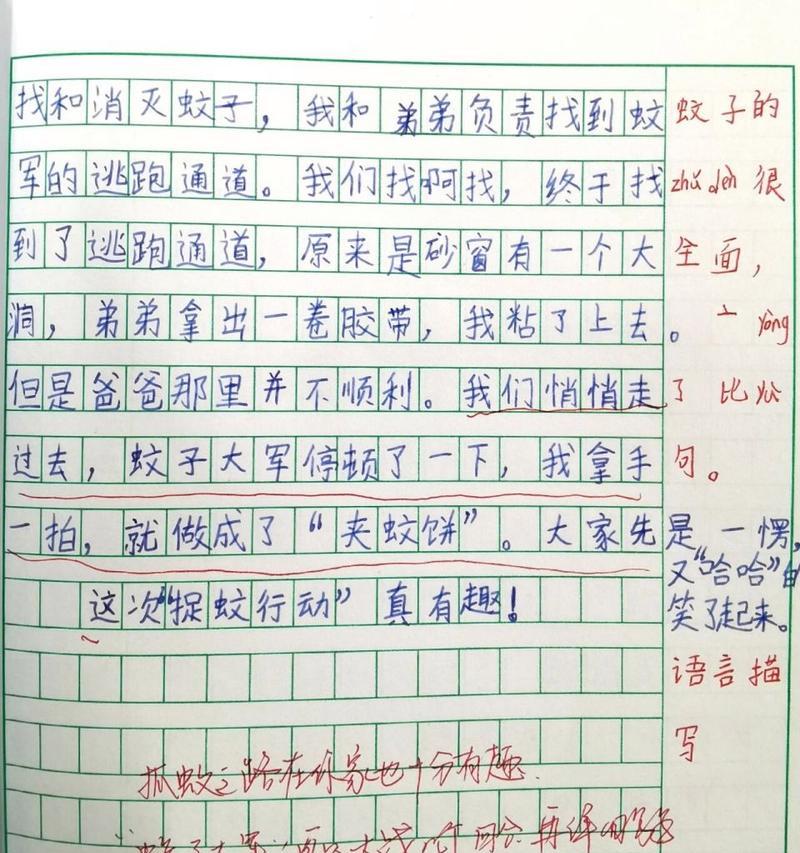 找和消灭蚊子，我和弟弟负责找到蚊
军的逃跑通道。我们找啊找，终于找
到了逃跑通道，原来是砂窗有一个大
洞，弟弟拿出一卷胶带，我粘了上去。
但是爸爸那里并不顺利。我们悄悄走
过去，蚊子大军停顿了一下，我拿手
一拍，就做成了“夹蚊饼”。大家先是一愣，
又“哈哈”的
笑了起来。
这次“捉蚊行动”真有趣！
蚊子的
zhuāng 很
全面，
yòng
了比
句。
语言描
写
抓蚊之路在你家也十分有趣